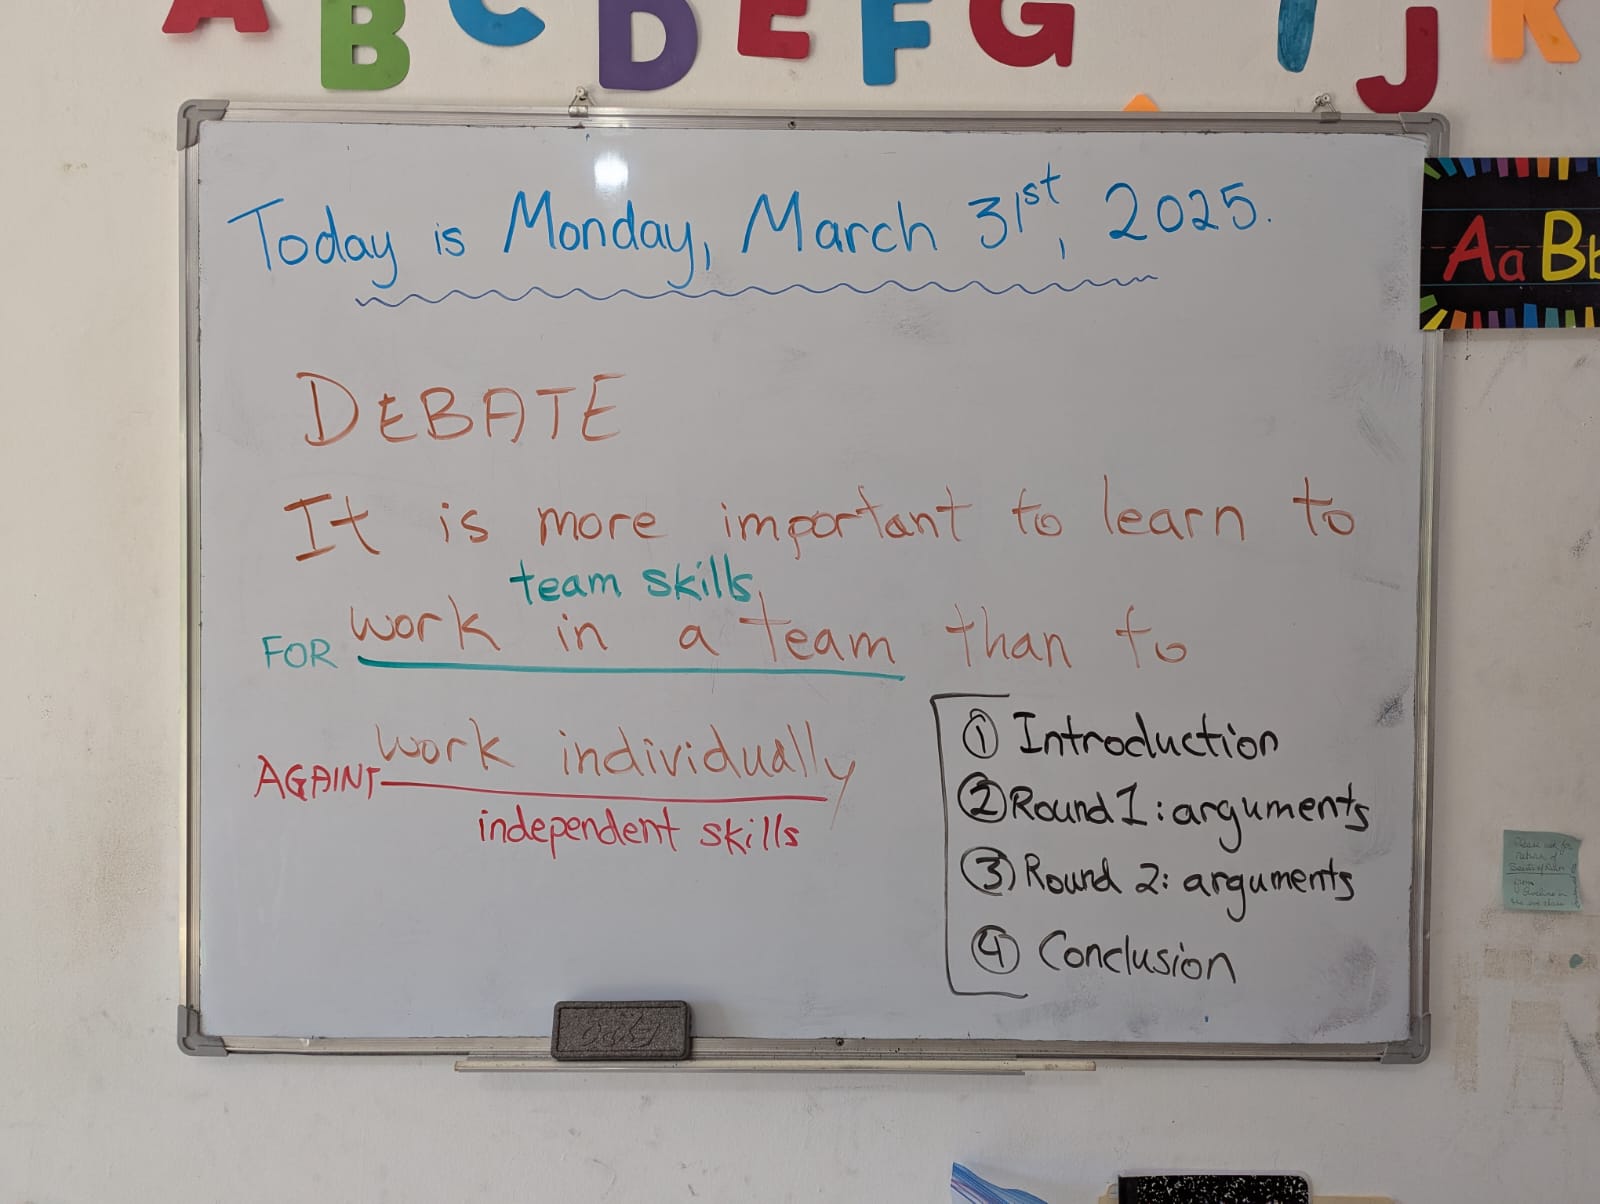 A B C D E F G I J K
Today is Monday, March 31st, 2025.
Aa Bb
DEBATE
It is more important to learn to
team skills
FOR work in a team than to
AGAINT work individually
independent skills
① Introduction
② Round 1: arguments
③ Round 2: arguments
④ Conclusion
Please ask for
return of
from